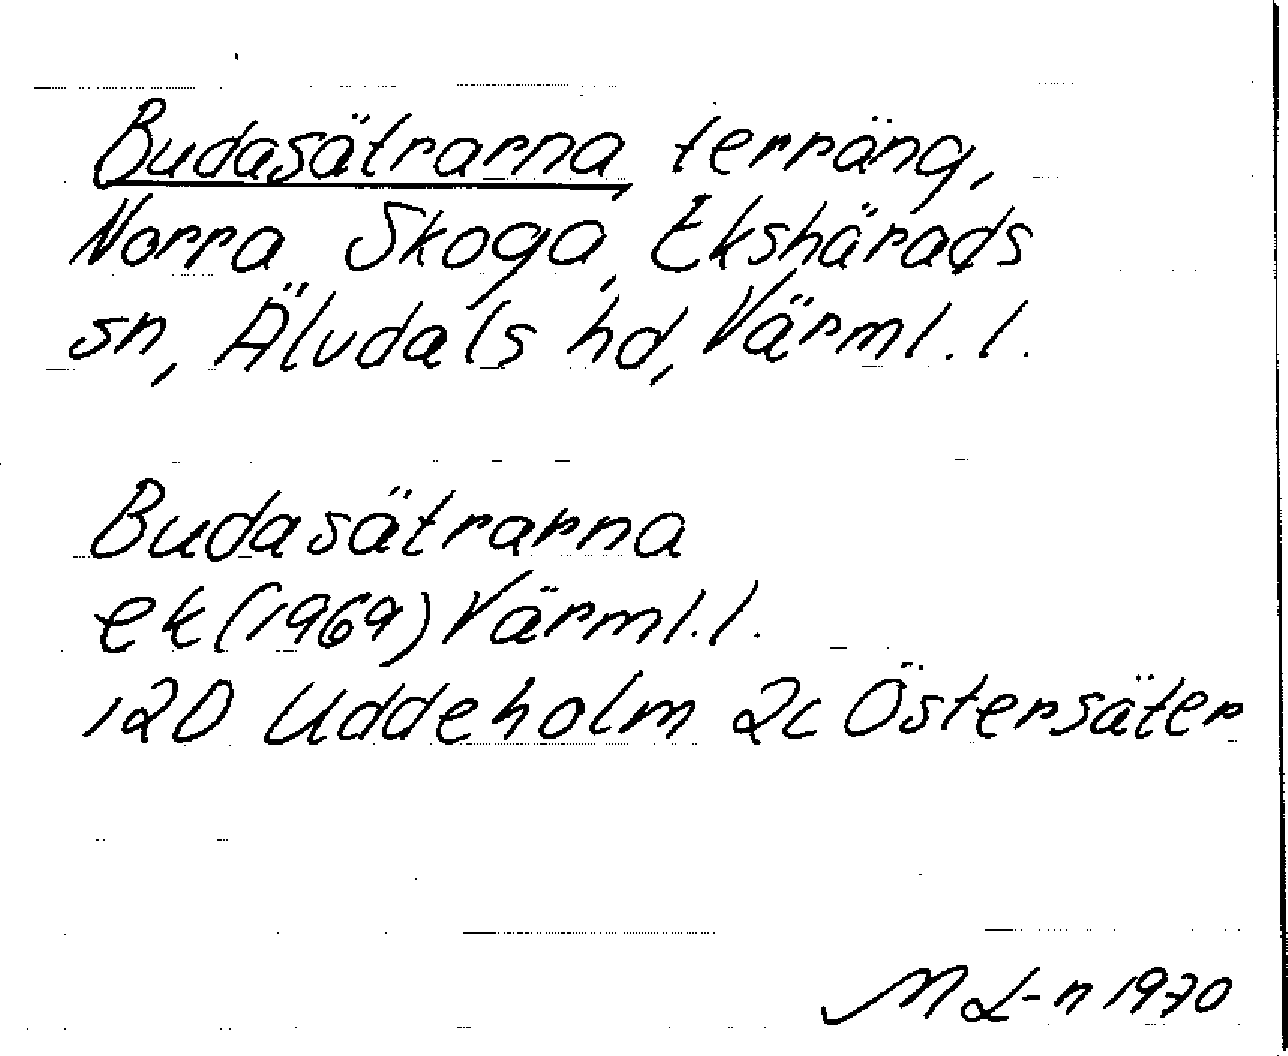 Budasätrarna, terräng,
Norra Skoga, Ekshärads
sn, Älvdals hd, Värml. l.
Budasätrarna
ek (1969) Värml. l.
12D Uddeholm 2c Östersäter
M L-n 1970